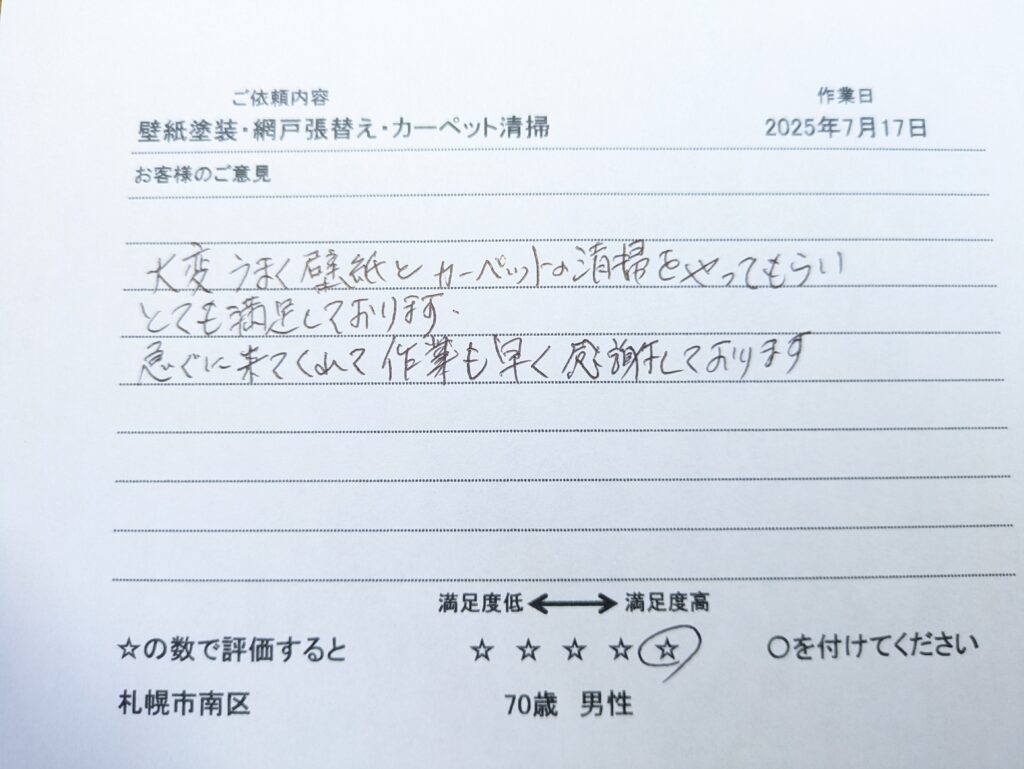 ご依頼内容 作業日
壁紙塗装・網戸張替え・カーペット清掃 2025年7月17日
お客様のご意見
大変うまく壁紙とカーペットの清掃をやってもらい
とても満足しております.
急ぐに来てくれて作業も早く感謝しております
満足度低 ⟷ 満足度高
☆の数で評価すると ☆ ☆ ☆ ☆ ☆ ○を付けてください
札幌市南区 70歳 男性